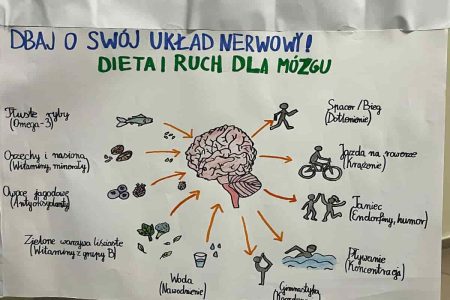 DBAJ O SWÓJ UKŁAD NERWOWY!
DIETA I RUCH DLA MÓZGU
Tłuste ryby
(Omega-3)
Orzechy i nasiona
(Witaminy, minerały)
Owoce jagodowe
(Antyoksydanty)
Zielone warzywa liściaste
(Witaminy z grupy B)
Woda
(Nawodnienie)
Gimnastyka
Pływanie
(Koncentracja)
Taniec
(Endorfiny, humor)
Jazda na rowerze
(Krążenie)
Spacer/Bieg
(Dotlenienie)